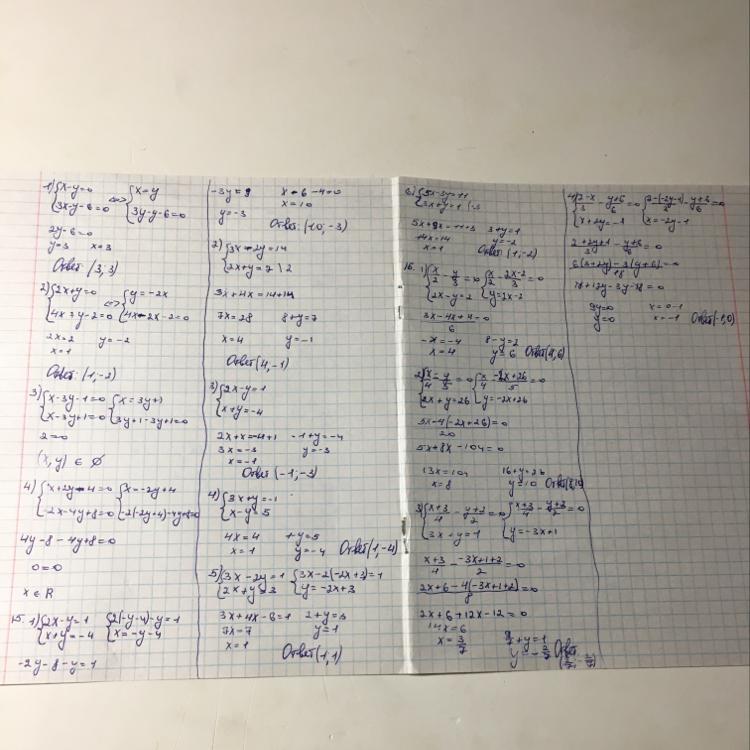 1) {x-y=0 <=> {x=y
{3x-y-6=0 {3y-y-6=0
2y-6=0
y=3 x=3
Ответ: (3;3)
2) {2x+y=0 <=> {y=-2x
{4x-y-2=0 {4x-2x-2=0
2x=2 y=-2
x=1
Ответ: (1,-2)
3) {x-3y-1=0 {x=3y+1
{x-3y+1=0 {3y+1-3y+1=0
2=0
(x,y) ∈ ∅
4) {x+2y-4=0 {x=-2y+4
{-2x-4y+8=0 {-2(-2y+4)-4y+8=0
4y-8-4y+8=0
0=0
x ∈ R
15. 1) {2x-y=1 {2(-y-4)-y=1
{x+y=-4 {x=-y-4
-2y-8-y=1
-3y=9 x-6-4=0
x=10
y=-3
Ответ: (10;-3)
2) {3x-2y=14
{2x+y=7 |2
3x+4x=14+14
7x=28 8+y=7
x=4 y=-1
Ответ (4,-1)
3) {2x-y=1
{x+y=-4
2x+x=-4+1 -1+y=-4
3x=-3 y=-3
x=-1
Ответ (-1;-3)
4) {3x+y=-1
{x-y=5
4x=4 1+y=5
x=1 y=-4 Ответ (1,-4)
5) {3x-2y=1 {3x-2(-2x+3)=1
{2x+y=3 {y=-2x+3
3x+4x-6=1 2+y=3
7x=7 y=1
x=1
Ответ (1,1)
6) {5x-3y=11
{3x+y=1 |3
5x+9x=11+3 3+y=1
14x=14 y=-2
x=1 Ответ (1,-2)
16. 1) {x/2-y/3=0 {x/2-2x-2/3=0
{2x-y=2 {y=2x-2
3x-4x+4=0/6
-x=-4 8-y=2
x=4 y=6 Ответ (4,6)
2) {x/4-y/5=0 {x/4--2x+26/5=0
{2x+y=26 {y=-2x+26
5x-4(-2x+26)/20=0
5x+8x-104=0
13x=104 16+y=26
x=8 y=10 Ответ (8,10)
3) {x+3/4-y+2/2=0 {x+3/4-y+2/2=0
{3x+y=1 {y=-3x+1
x+3/4--3x+1+2/2=0
2x+6-4(-3x+1+2)/8=0
2x+6+12x-12=0
14x=6
x=3/7 9/7+y=1
y=-2/7 Ответ (3/7;-2/7)
4) {2-x/3-y+6/6=0 {2-(-2y-1)/3-y+6/6=0
{x+2y=-1 {x=-2y-1
2+2y+1/3-y+6/6=0
6(3+2y)-3(y+6)/18=0
18+12y-3y-18=0
9y=0 x=0-1
y=0 x=-1 Ответ (-1,0)